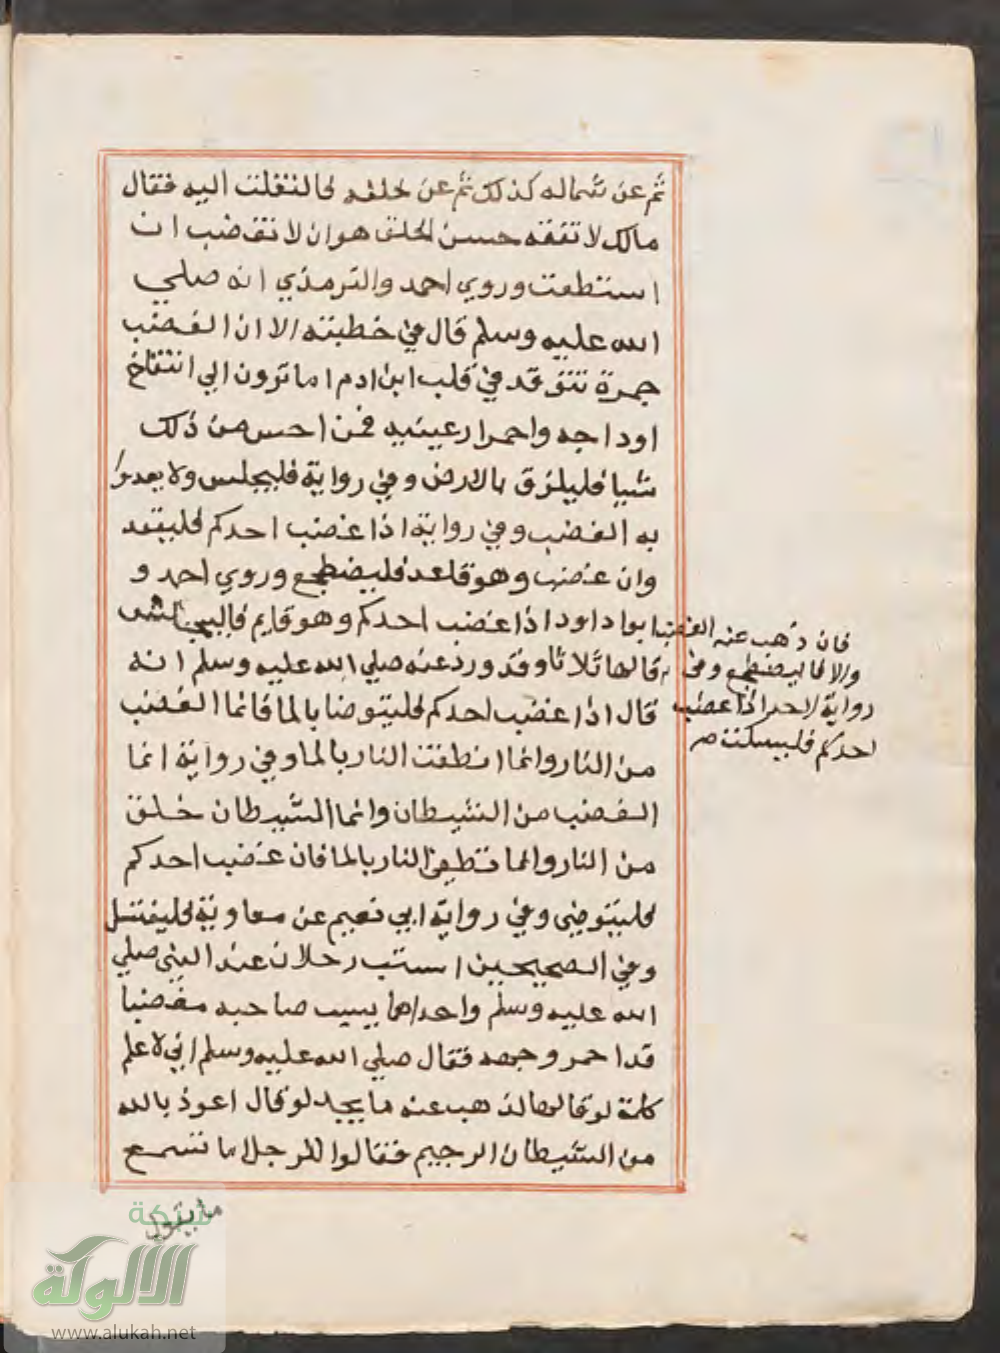 ثم عن شماله كذلك ثم عن خلفه فالتفلت اليه فقال
مالك لا تفقه حسن الخلق هوان لا تغضب ان
استطعت وروي احمد والترمذي انه صلي
الله عليه وسلم قال في خطبته الا ان الغضب
جمرة تتوقد في قلب ابن ادم اما ترون الي انتفاخ
اوداجه واحمرار عينيه فمن احس من ذلك
شيا فليلزق بالارض وفي رواية فليجلس ولا يعدوا
به الغضب وفي رواية اذا غضب احدكم فليقعد
وان غضب وهو قاعد فليضطجع وروي احمد و
ابوا داود اذا غضب احدكم وهو قايم فاليجلس
قالها ثلاثا وقد ورد عنه صلي الله عليه وسلم انه
قال اذا غضب احدكم فليتوضا بالما فانما الغضب
من النار وانما انطفت النار بالما وفي رواية انما
الغضب من الشيطان وانما الشيطان خلق
من النار وانما تطفئ النار بالما فان غضب احدكم
فليتوضى وفي رواية ابي نعيم عن معاوية فليغتسل
وفي الصحيحين استب رجلان عند النبي صلي
الله عليه وسلم واحداهما يسب صاحبه مغضبا
قد احمر وجهه فقال صلي الله عليه وسلم اني لاعلم
كلمة لو قالها لذهب عنه ما يجد لو قال اعوذ بالله
من الشيطان الرجيم فقالوا للرجل اما تسمع
فان ذهب عنه الغضب
والا فاليضطجع وفي
رواية لاحمد اذا غضب
احدكم فليسكت صح
ما يقول
شبكة
الألوكة
www.alukah.net